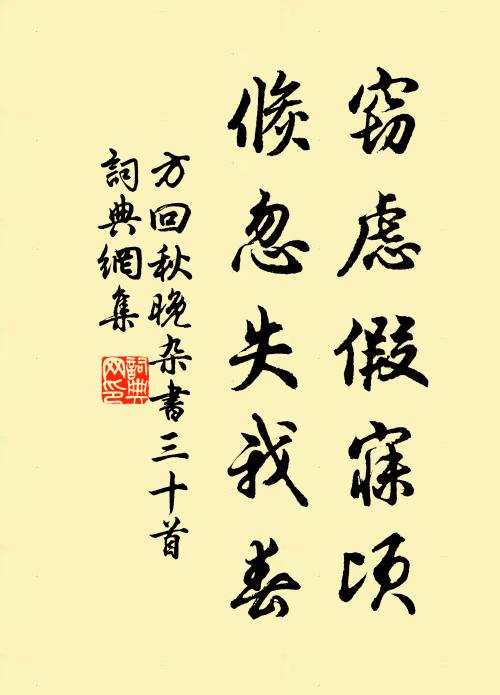 窃虑假寐顷
倏忽失我春
方回秋晚杂书三十首
詞典網集
詞典网印